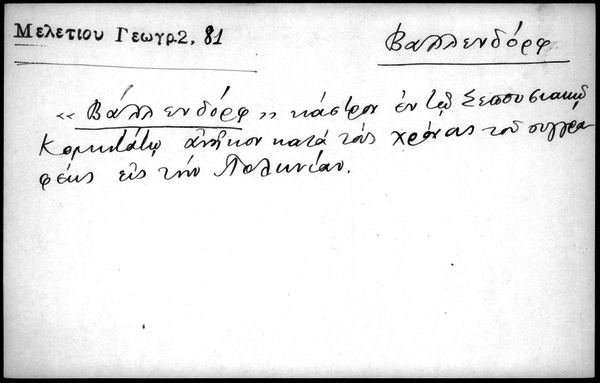 Μελετίου Γεωγρ.2, 81
Βαλλενδόρφ
« Βάλλενδόρφ » κάστρον ἐν τῷ Σεπουσιακῷ
Κομιτάτῳ ἀνῆκον κατὰ τοὺς χρόνους τοῦ συγγρα
φέως εἰς τὴν Πολωνίαν.